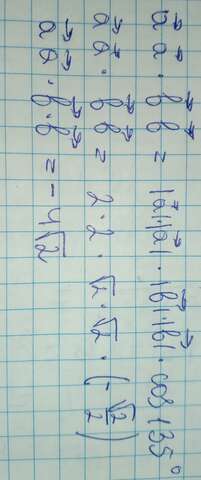 a⃗ a⃗ · b⃗ b⃗ = |a⃗|·|a⃗| · |b⃗|·|b⃗| · cos 135°
a⃗ a⃗ · b⃗ b⃗ = 2·2 · √2·√2 · (-√2/2)
a⃗ a⃗ · b⃗·b⃗ = -4√2